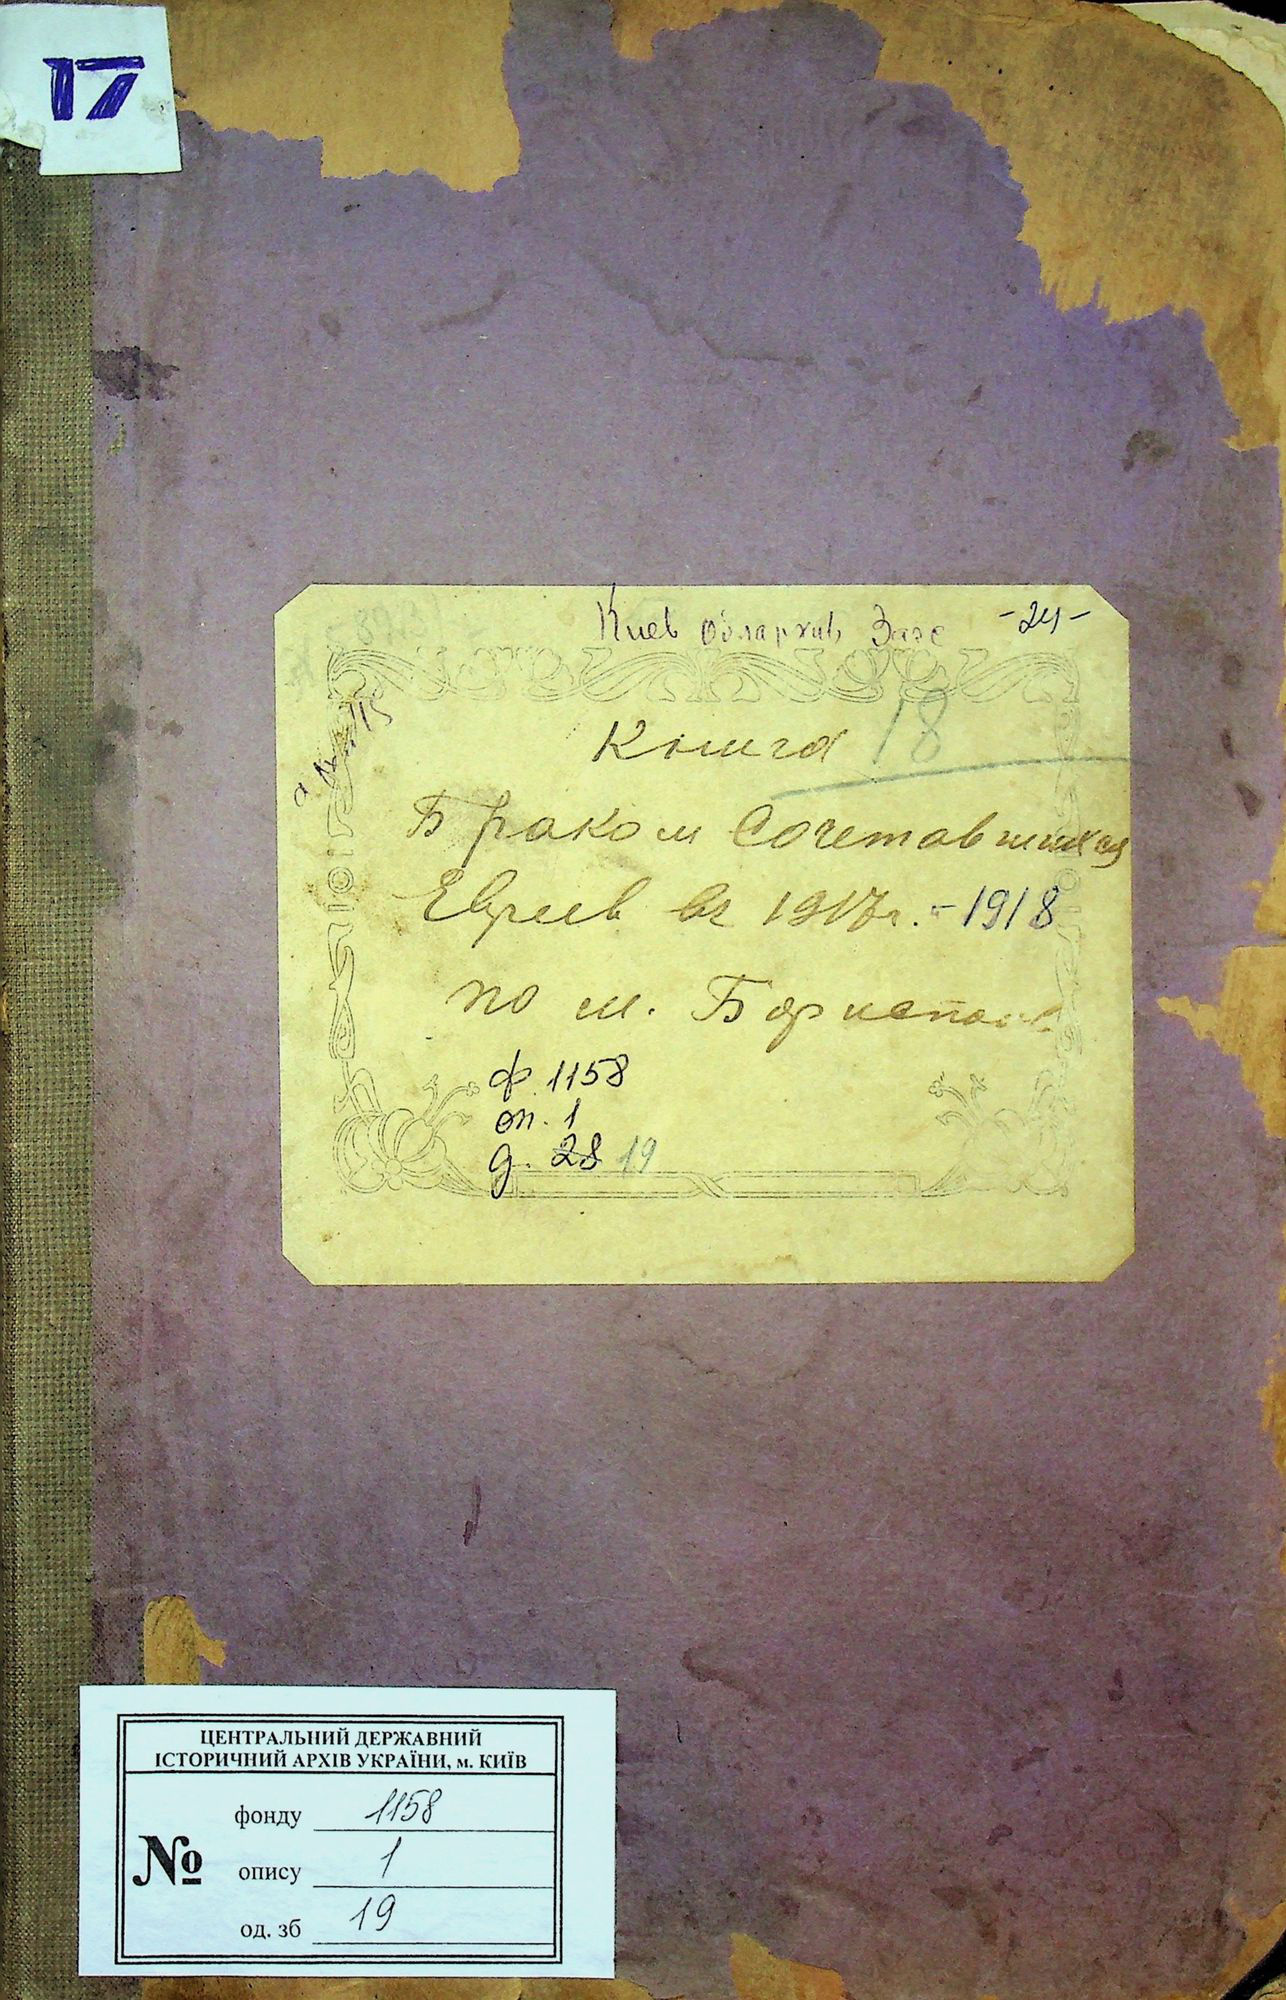 17
Киев Облархив Загс -24-
Книга 18
Браком Сочетавшихся
Евреев въ 1917 г. - 1918
по м. Борисполь
ф. 1158
оп. 1
д. 28 19
ЦЕНТРАЛЬНИЙ ДЕРЖАВНИЙ
ІСТОРИЧНИЙ АРХІВ УКРАЇНИ, м. КИЇВ
№
фонду 1158
опису 1
од. зб 19